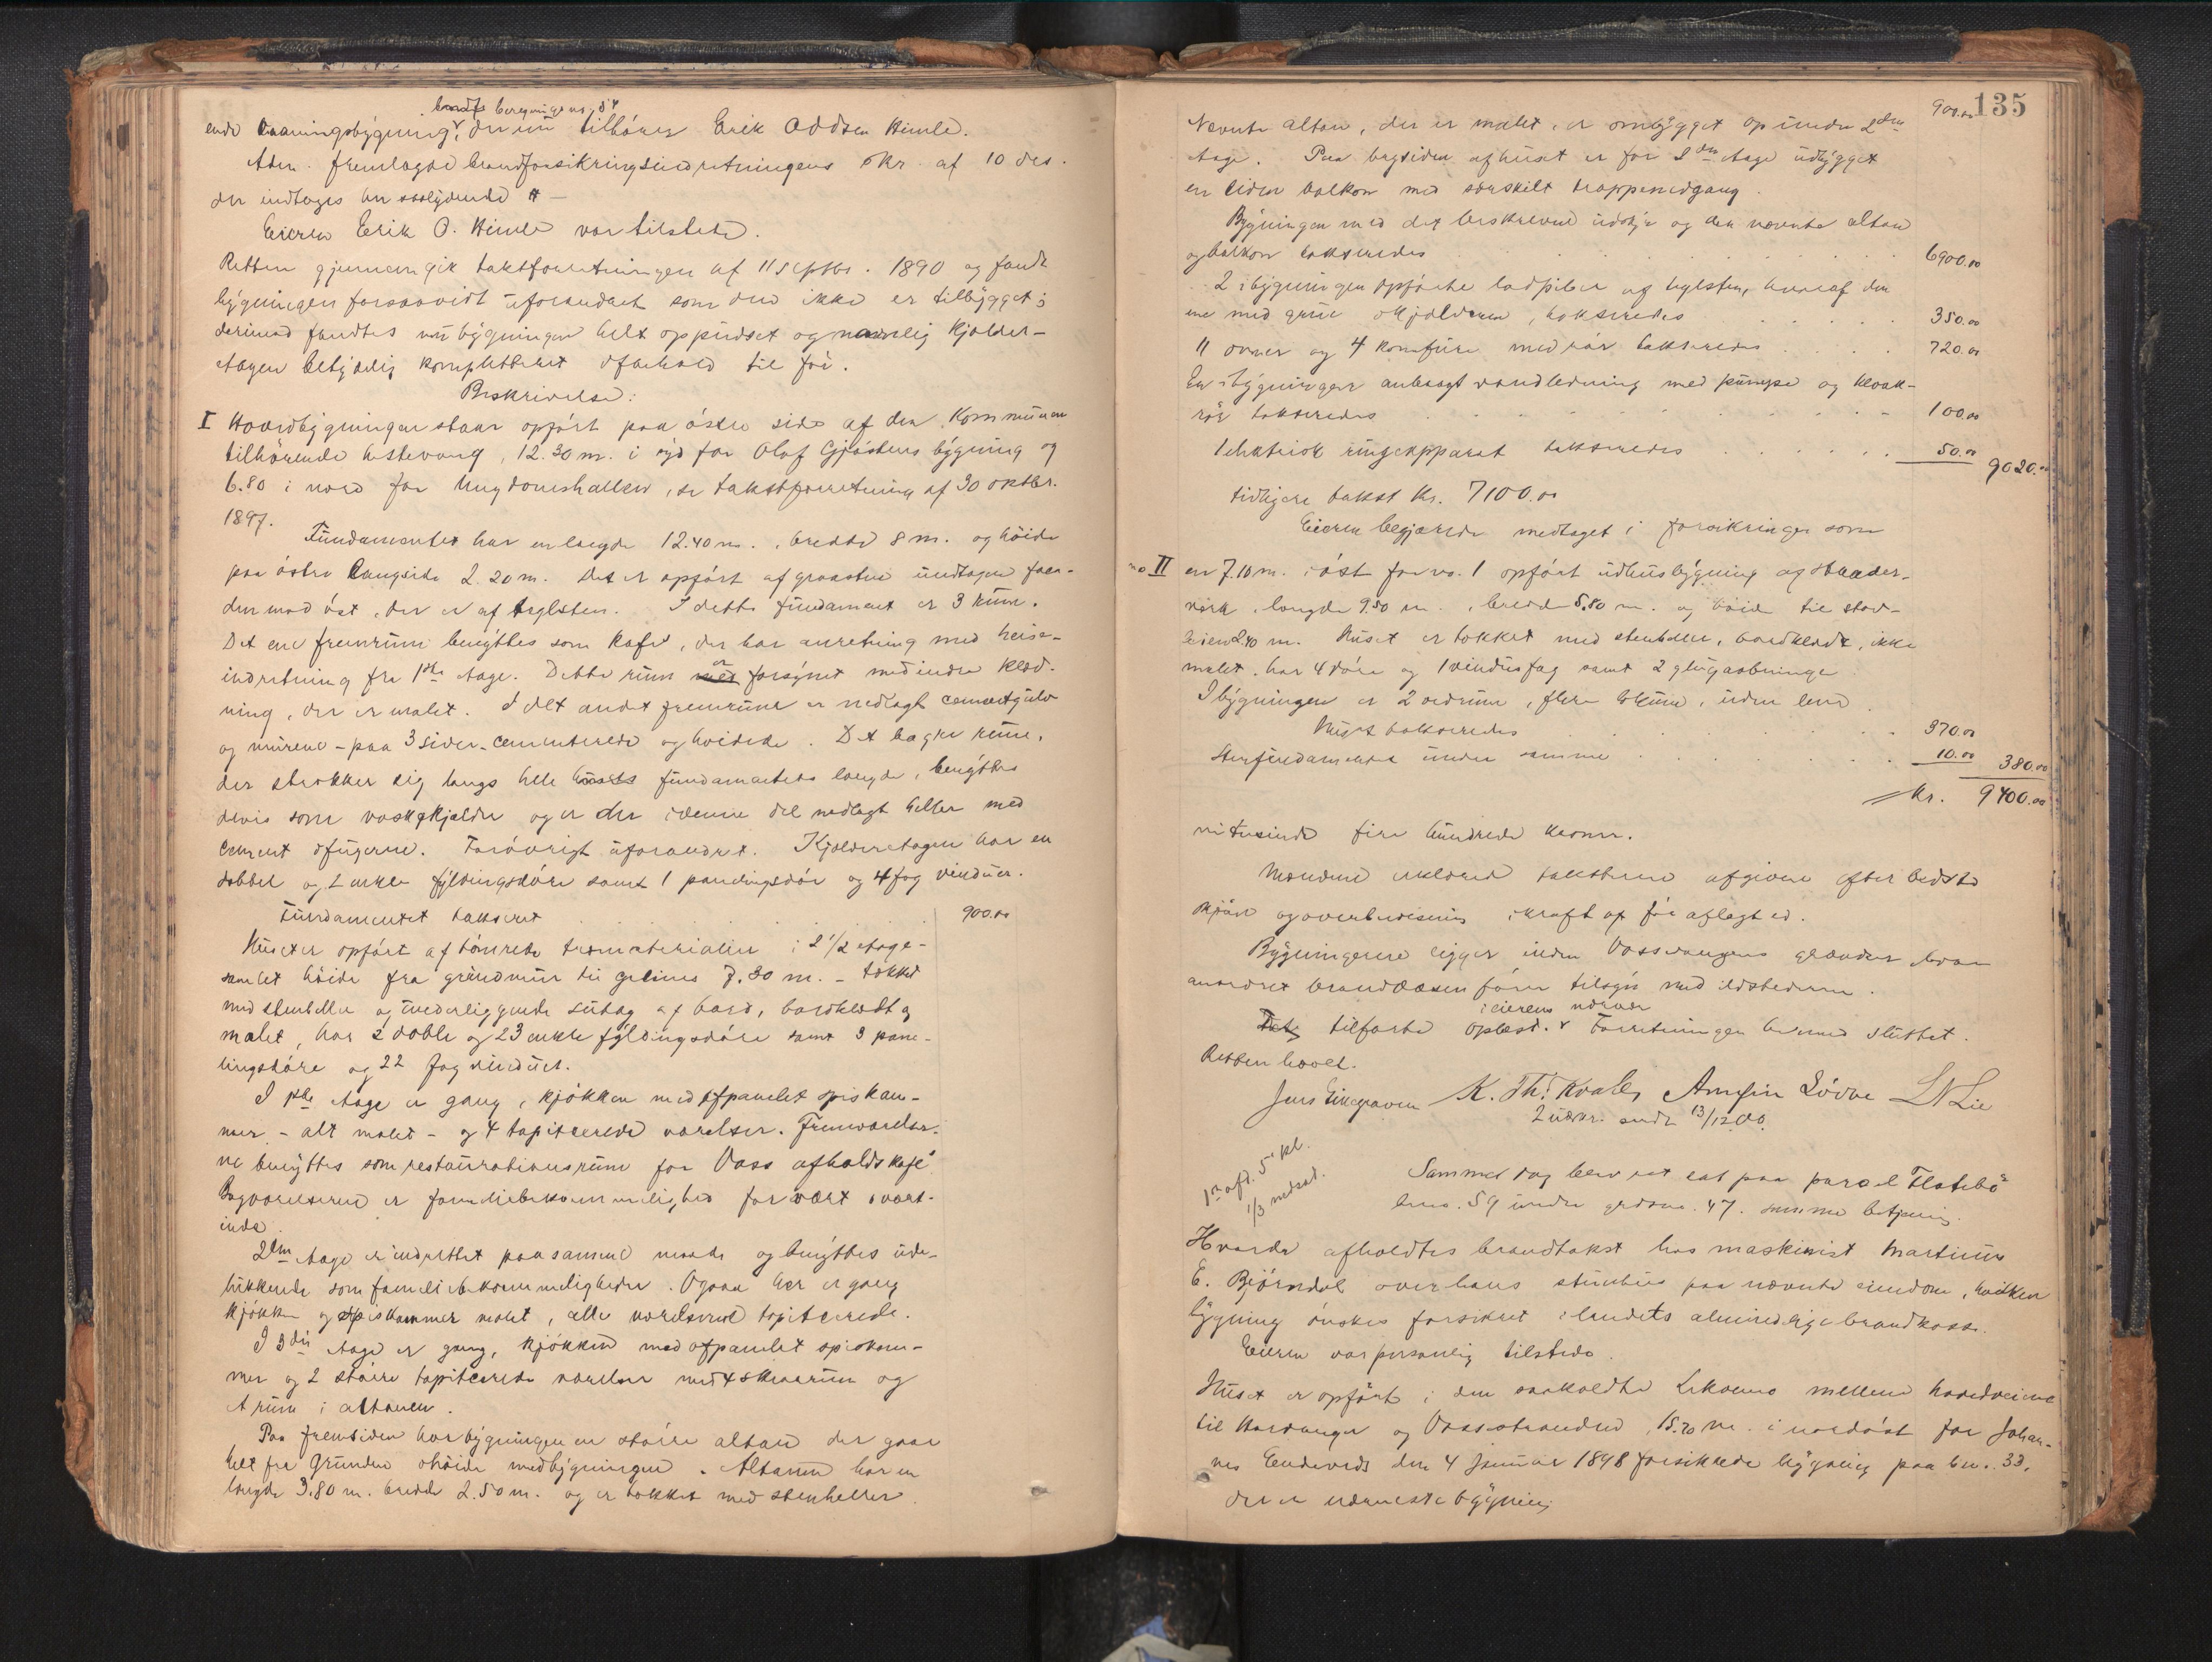 ende Vaaningsbygning, der nu tilhører Erik Oddsen Himle.
Adm. fremlagde brandforsikringsindretningens skr. af 10 des.
der indtages her saalydende #—
Eieren Erik O. Himle var tilstede.
Retten gjennemgik takstforretningen af 11 septbr. 1890 og fandt
bygningen forsaavidt uforandret som den ikke er tilbygget;
derimod fandtes nu bygningen helt oppudset og navnlig kjelder-
etagen betydelig komplettert i forhold til før.
Beskrivelse:
I Hovedbygningen staar opført paa østre side af den kommunen
tilhørende hestevang, 12.30 m. i syd for Olaf Gjøsteins bygning og
6.80 i nord for Ungdomshallen, se takstforretning af 30 oktbr.
1897.
Fundamentet har en længde 12.40 m., bredde 8 m. og høide
paa østre langside 2.20 m. Det er opført af graasten undtagen faca-
den mod øst, der er af teglsten. I dette fundament er 3 rum.
Det ene fremrum benyttes som kafe, der har anretning med heise-
indretning fra 1ste etage. Dette rum er forsynet med indre klæd-
ning, der er malet. I det andet fremrum er nedlagt cementgulv
og murene - paa 3 sider - cementerede og hvidtede. Det bagre rum,
der strækker sig langs hele fundamentets længde, benyttes
delvis som vaskekjelder og er der i denne del nedlagt heller med
cement i fugerne. Forøvrigt uforandret. Kjelderetagen har en
dobbel og 2 enkle fyldingsdøre samt 1 panelingsdør og 4 fag vinduer.
Fundamentet takseret 900.00
Huset er opført af tømrede træmaterialier i 2 1/2 etage-
samlet høide fra grundmur til gesims 7.30 m. - tækket
med stenheller og underliggende sutag af bord, bordklædt og
malet, har 2 doble og 23 enkle fyldingsdøre samt 3 pane-
lingsdøre og 22 fag vinduer.
I 1ste etage er gang, kjøkken med afpanelet spiskam-
mer - alt malet - og 4 tapitserede værelser. Fremværelser-
ne benyttes som restaurationsrum for Voss afholdskafe.
Bagværelserne er familiebekvemmelighed for vært & vært-
inde.
2den etage er indrettet paa samme maade og benyttes ude-
lukkende som familiebekvemmeligheder. Ogsaa her er gang
kjøkken og spiskammer malet, alle værelserne tapitserede.
I 3die etage er gang, kjøkken med afpanelet spiskam-
mer og 2 større tapitserede værelser med 4 skraarum og
et rum i altanen.
Paa fremsiden har bygningen en større altan der gaar
helt fra grunden i høide med bygningen. Altanen har en
længde 3.80 m. bredde 2.50 m. og er tækket med stenheller.
900.00 135
Nævnte altan, der er malet, er ombygget op under 2den
etage. Paa bagsiden af huset er for 2den etage udbygget
en liden balkon med særskilt trappenedgang.
Bygningen med det beskrevne udstyr og den nævnte altan
og balkon takseredes 6900.00
2 i bygningen opførte ladpiber af teglsten, hvoraf den
ene med grue i kjelderen, takseredes 350.00
11 ovner og 4 komfure med rør takseredes 720.00
En i bygningen anbragt vandledning med pumpe og kloak-
rør takseredes 100.00
1 elektrisk ringeapparat takseredes 50.00 9020.00
tidligere takst kr. 7100.00
Eieren begjærede medtaget i forsikringen som
no II en 7.10 m. i øst for no. 1 opført udhusbygning af stander-
værk, længde 9.50 m., bredde 5.80 m. og høide til stav-
leien 2.40 m. Huset er tækket med stenheller, bordklædt, ikke
malet, har 4 døre og 1 vindusfag samt 2 glugaabninger.
I bygningen er 2 vedrum, flere, uden lem.
Huset takseredes 370.00
Stenfundamentet under samme 10.00 380.00
kr. 9400.00
nitusinde fire hundrede kroner.
Mændene erklærede taksterne afgivne efter bedste
skjøn og overbevisning i kraft af før aflagt ed.
Bygningerne ligger inden Vossevangens grændser hvor
anordnet brandvæsen fører tilsyn med ildstederne.
i eierens nærvær
Det tilførte oplæst. Forretningen hermed sluttet.
Retten hævet.
K. Th. Kvale Arnfin Lødve L N Lie
2 udskr. sendt 13/12 00.
1ste afd. 5' kl.
1/3 nedsat.
Samme dag blev ret sat paa parcel Flatebø
brno. 59 under grdsno. 47. samme betjening.
Hvorda afholdtes brandtakst hos maskinist Martinus
E. Bjørndal over hans stuehus paa nævnte eiendom, hvilken
bygning ønskes forsikret i landets almindelige brandkasse.
Eieren var personlig tilstede.
Huset er opført i den saakaldte Lekve mellem hovedveiene
til Hardanger og Vossestranden, 15.70 m. i nordøst for Johan-
nes den 4 Januar 1898 forsikrede bygning paa bn. 33,
der er nærmeste bygning